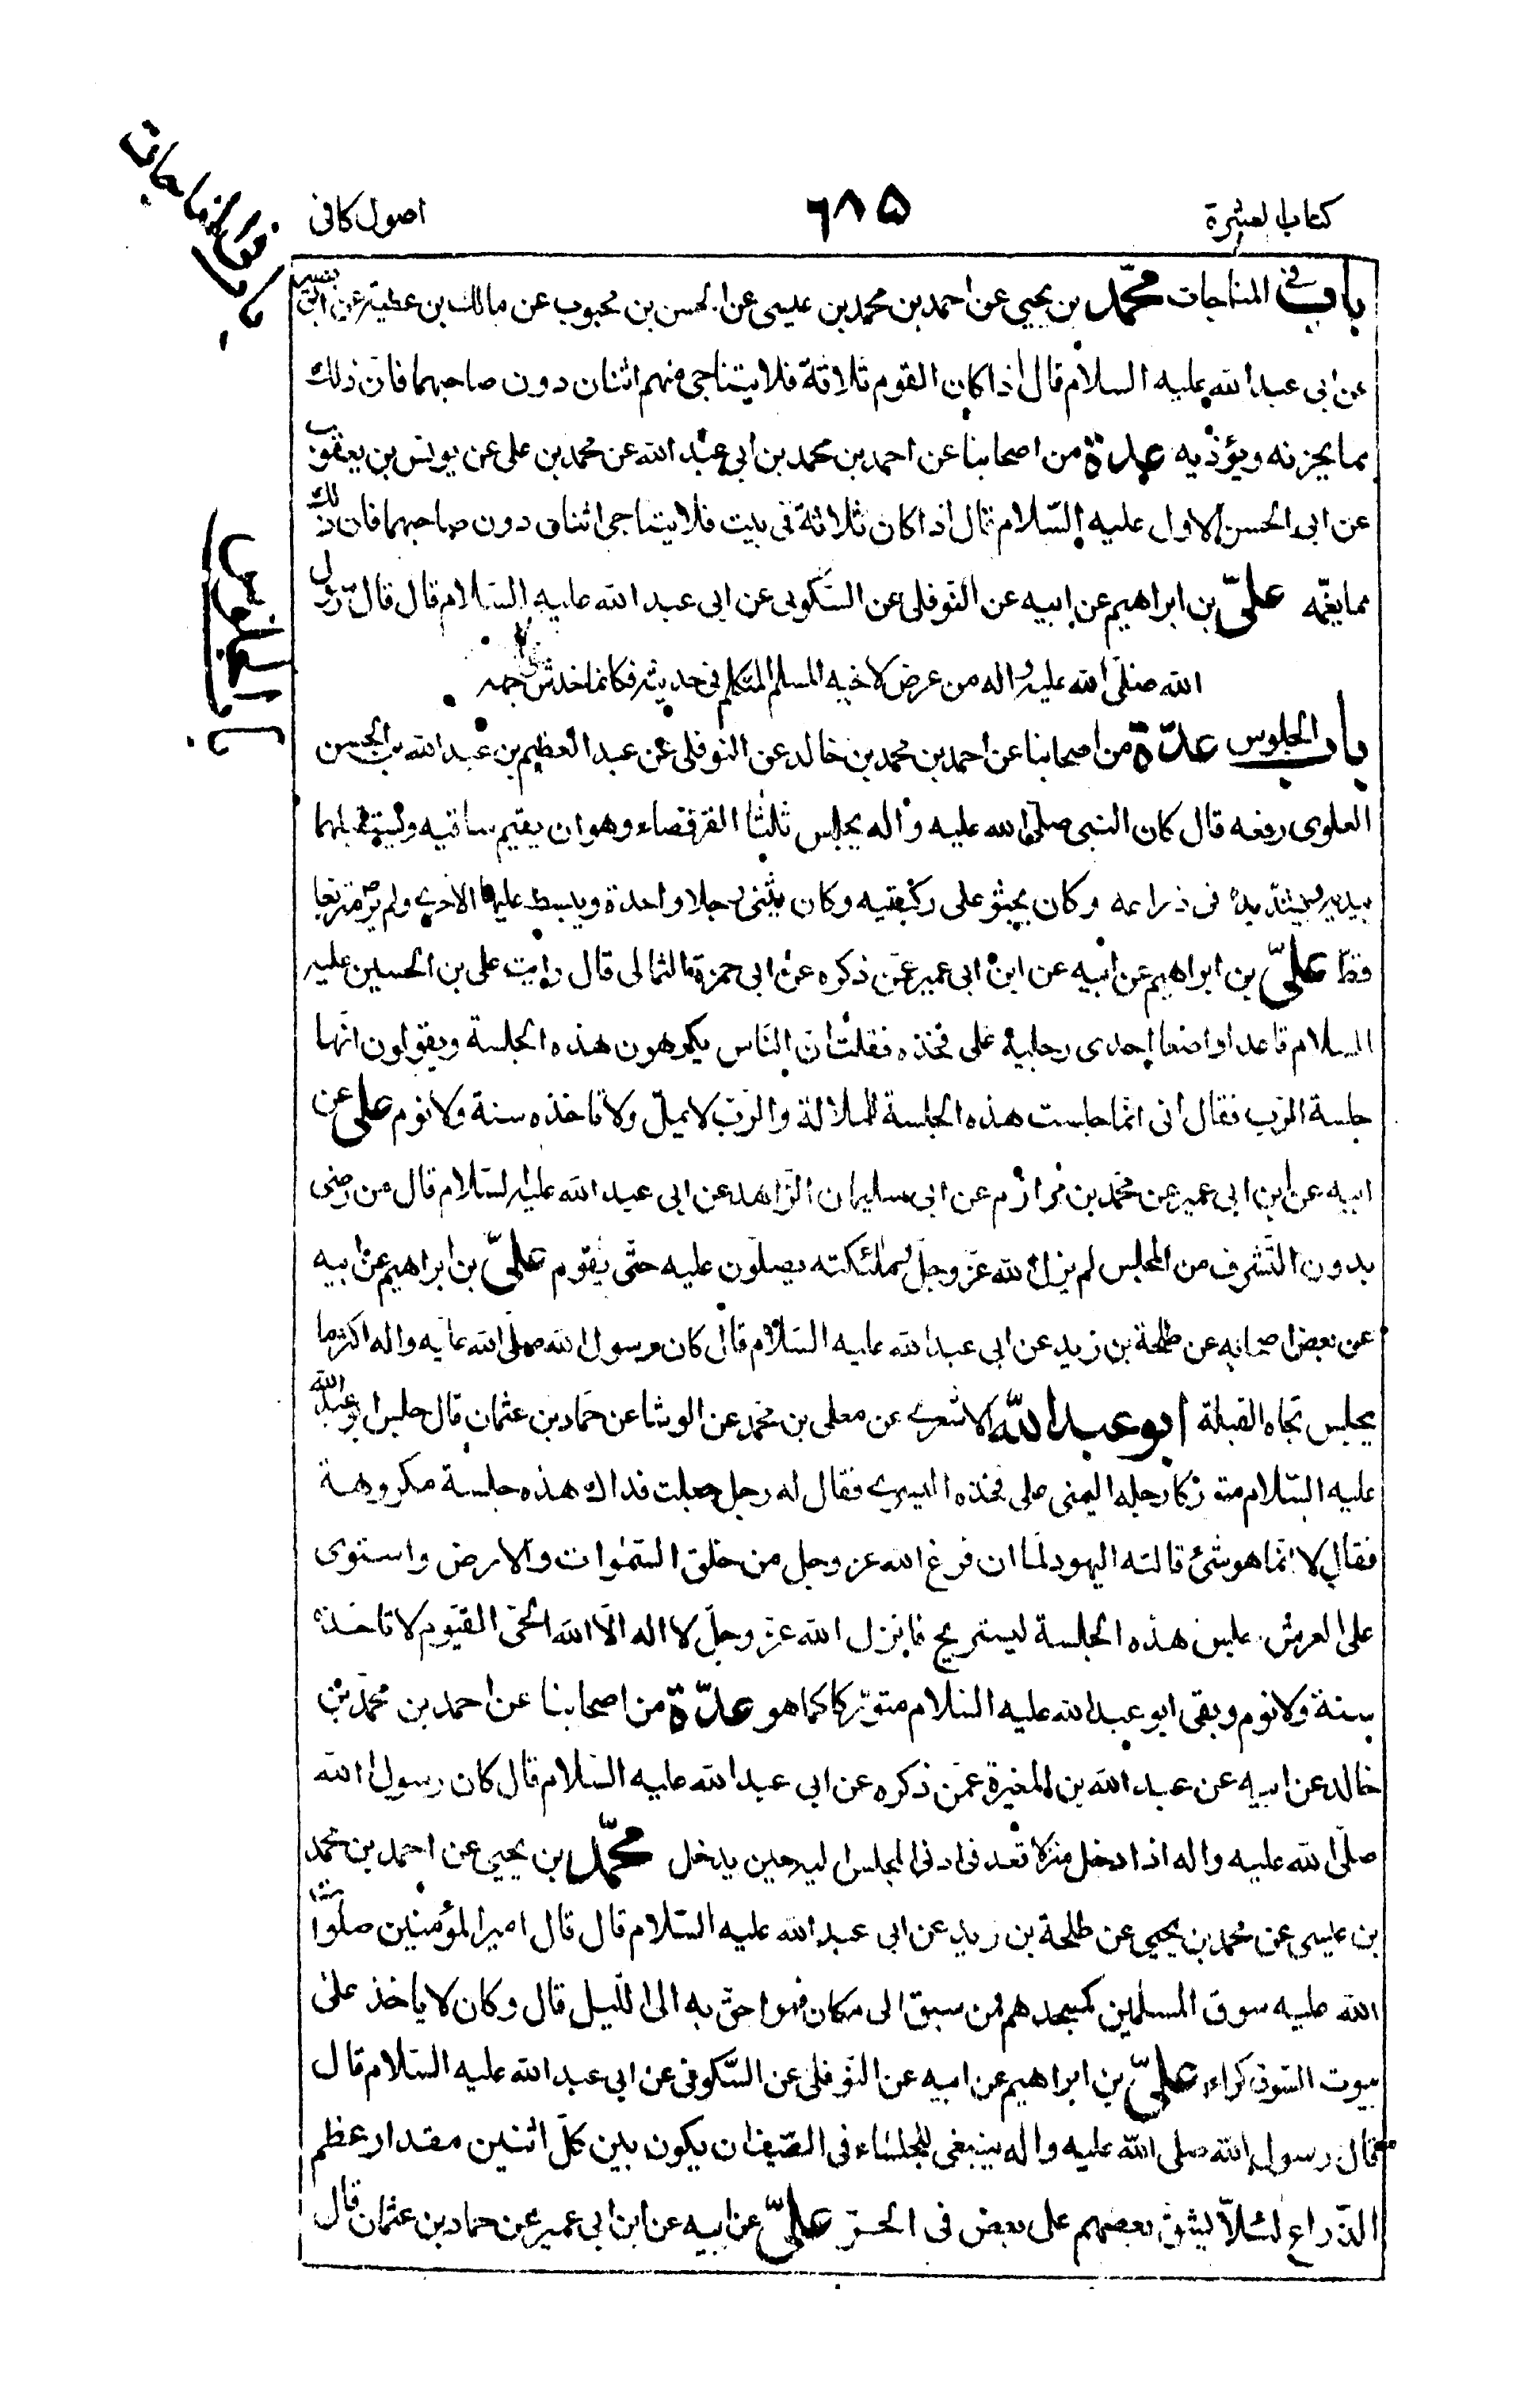 كتاب العشرة
٦٨٥
اصول كافى
باب فى المناجات
باب فى المناجات محمّد بن يحيى عن احمد بن محمد بن عيسى عن الحسن بن محبوب عن مالك بن عطية عن ابى بصير
عن ابى عبد الله عليه السلام قال اذا كان القوم ثلاثة فلا يتناجى منهم اثنان دون صاحبهما فان ذلك
مما يحزنه ويؤذيه عدة من اصحابنا عن احمد بن محمد بن ابى عبد الله عن محمد بن على عن يونس بن يعقوب
عن ابى الحسن الاول عليه السّلام قال اذا كان ثلاثة فى بيت فلا يتناجى اثنان دون صاحبهما فان ذلك
مما يغمّه علىّ بن ابراهيم عن ابيه عن النوفلى عن السّكونى عن ابى عبد الله عليه السّلام قال قال رسول
الله صلّى الله عليه واله من عرض لاخيه المسلم المتكلم فى حديثه فكانما خدش وجهه
باب الجلوس
باب الجلوس عدّة من اصحابنا عن احمد بن محمد بن خالد عن النوفلى عن عبد العظيم بن عبد الله بن الحسن
العلوى رفعه قال كان النبى صلى الله عليه واله يجلس ثلثا القرفصاء وهو ان يقيم ساقيه ويستقبلهما
بيديه يشد يده فى ذراعه وكان يجثو على ركبتيه وكان يثنى رجلا واحدة ويبسط عليها الاخرى ولم ير متربعا
قطّ علىّ بن ابراهيم عن ابيه عن ابن ابى عمير عمّن ذكره عن ابى حمزة الثمالى قال رايت على بن الحسين عليه
السلام قاعدا واضعا احدى رجليه على فخذه فقلت ان النّاس يكرهون هذه الجلسة ويقولون انّها
جلسة الرب فقال انى انّما جلست هذه الجلسة للملالة والرّب لا يملّ ولا تاخذه سنة ولا نوم على عن
ابيه عن ابن ابى عمير عن محمد بن مرازم عن ابى سليمان الزّاهد عن ابى عبد الله عليه السّلام قال من رضى
بدون التّشرف من المجلس لم يزل الله عزّ وجلّ وملئكته يصلّون عليه حتّى يقوم علىّ بن ابراهيم عن ابيه
عن بعض اصحابه عن طلحة بن زيد عن ابى عبد الله عليه السّلام قال كان رسول الله صلّى الله عليه واله اكثر ما
يجلس تجاه القبلة ابو عبد الله الاشعرى عن معلى بن محمد عن الوشا عن حمّاد بن عثمان قال جلس ابو عبد الله
عليه السّلام متوركا رجله اليمنى على فخذه اليسرى فقال له رجل جعلت فداك هذه جلسة مكروهة
فقال لا انّما هو شئ قالته اليهود لمّا ان فرغ الله عز وجل من خلق السّموات والارض واستوى
على العرش جلس هذه الجلسة ليستريح فانزل الله عزّ وجلّ لا اله الّا الله الحىّ القيّوم لا تاخذه
سنة ولا نوم وبقى ابو عبد الله عليه السّلام متورّكا كما هو عدّة من اصحابنا عن احمد بن محمّد بن
خالد عن ابيه عن عبد الله بن المغيرة عمّن ذكره عن ابى عبد الله عليه السّلام قال كان رسول الله
صلّى الله عليه واله اذا دخل منزلا قعد فى ادنى المجلس اليه حين يدخل محمّد بن يحيى عن احمد بن محمد
بن عيسى عن محمد بن يحيى عن طلحة بن زيد عن ابى عبد الله عليه السّلام قال قال امير المؤمنين صلوات
الله عليه سوق المسلمين كمسجدهم فمن سبق الى مكان فهو احقّ به الى اللّيل قال وكان لا ياخذ على
بيوت السّوق كراء علىّ بن ابراهيم عن ابيه عن النّوفلى عن السّكونى عن ابى عبد الله عليه السّلام قال
قال رسول الله صلى الله عليه واله ينبغى للجلساء فى الصّيف ان يكون بين كلّ اثنين مقدار عظم
الذّراع لئلّا يشقّ بعضهم على بعض فى الحرّ علىّ عن ابيه عن ابن ابى عمير عن حماد بن عثمان قال